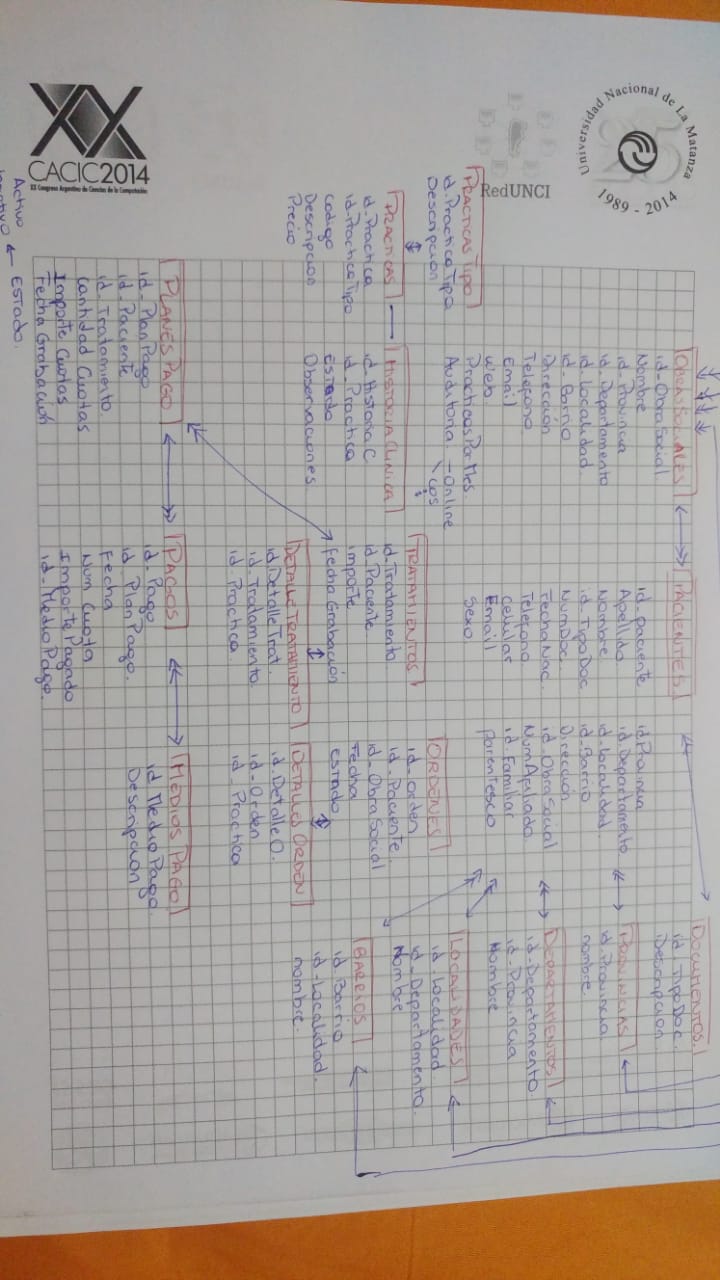 Universidad Nacional de La Matanza
1989 - 2014
RedUNCI
XX
CACIC2014
XX Congreso Argentino de Ciencias de la Computación
OBRAS SOCIALES
id-Obra Social
Nombre
id-Provincia
id-Departamento
id-Localidad
id-Barrio
Dirección
Teléfono
Email
web
Practicas Por Mes
Auditoria - Online
CDs
PACIENTES
id-paciente
Apellido
Nombre
id-TipoDoc
NumDoc
FechaNac.
Telefono
celular
Email
Sexo
id.Provincia
id.Departamento
id-Localidad
id-Barrio
Dirección
id-ObraSocial
NumAfiliado
id-Familiar
parentesco
DOCUMENTOS
id_TipoDoc.
Descripción
PROVINCIAS
id.Provincia
nombre
DEPARTAMENTOS
id-Departamento
id-Provincia
Nombre
LOCALIDADES
id-Localidad
id-Departamento
Nombre
BARRIOS
id-Barrio
id-Localidad.
nombre.
PRACTICAS TIPO
id-Practica Tipo
Descripción
PRACTICAS
id-Practica
id-PracticaTipo
codigo
Descripcion
Precio
HISTORIA CLINICA
id-Historia C
id-Practica
ESTADO
Observaciones
TRATAMIENTOS
id-Tratamiento
id-Paciente
importe
Fecha Grabación
DETALLE TRATAMIENTO
id.DetalleTrat.
id-Tratamiento
id-Practica
ORDENES
id-orden
id-Paciente
id-ObraSocial
Fecha
ESTADO
DETALLES ORDEN
id-DetalleO.
id-Orden
id-Practica
PLANES PAGO
id-PlanPago
id-Paciente
id-Tratamiento
Cantidad Cuotas
Importe Cuotas
Fecha Grabación
ESTADO.
Activo
PAGOS
id-Pago
id PlanPago.
Fecha
Num Cuota
Importe Pagado
id-MedioPago.
MEDIOS PAGO
id MedioPago
Descripción